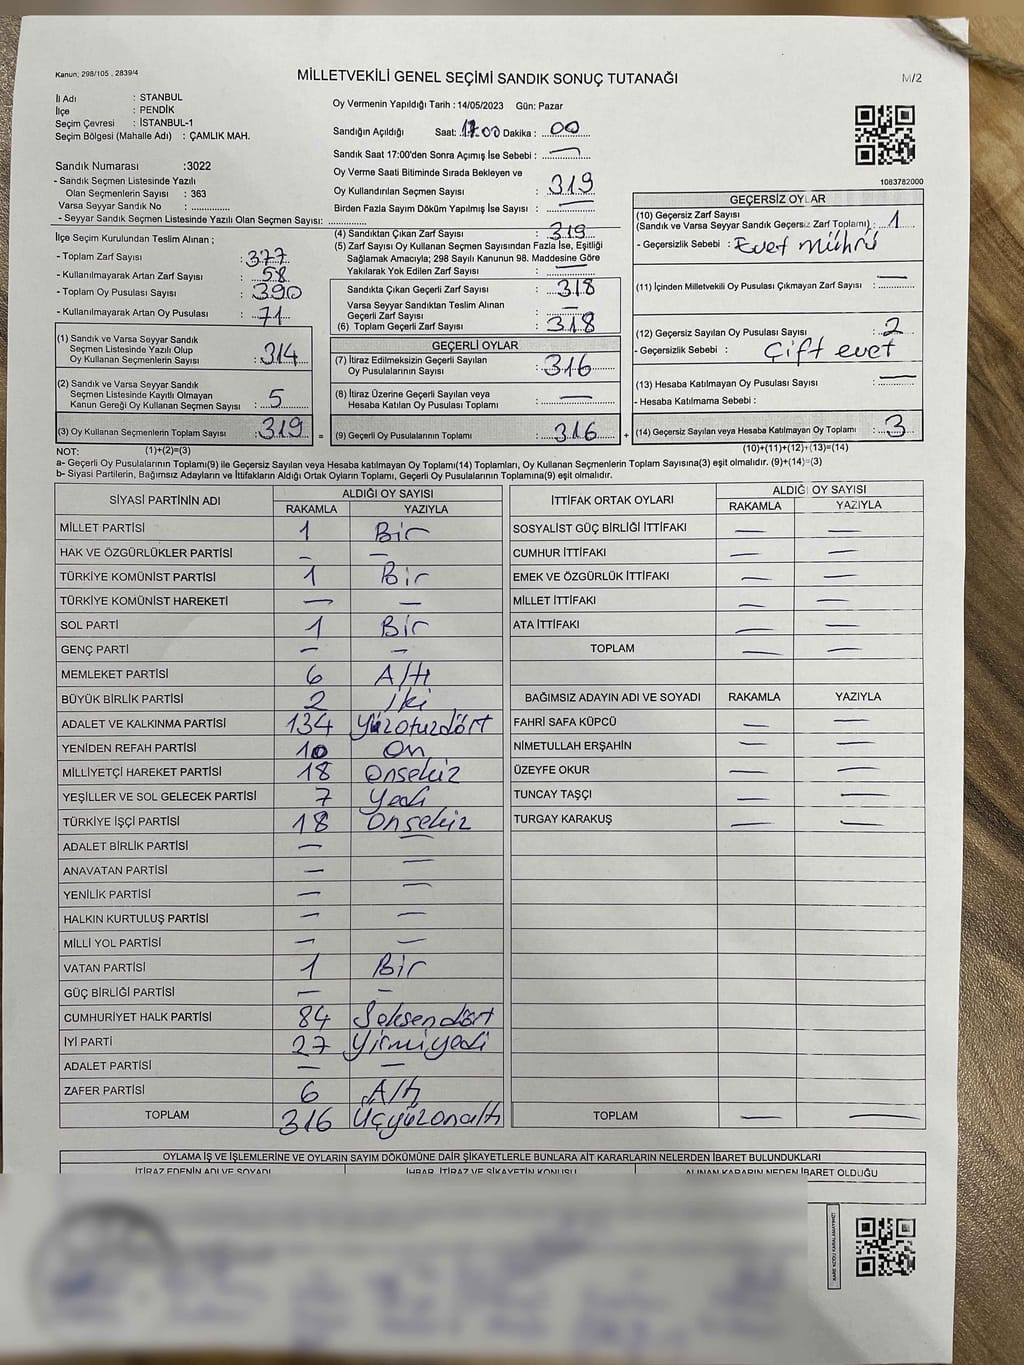 Kanun, 298/105 , 2839/4
MİLLETVEKİLİ GENEL SEÇİMİ SANDIK SONUÇ TUTANAĞI
M/2
İl Adı : STANBUL
İlçe : PENDİK
Seçim Çevresi : İSTANBUL-1
Seçim Bölgesi (Mahalle Adı) : ÇAMLIK MAH.
Oy Vermenin Yapıldığı Tarih : 14/05/2023 Gün: Pazar
Sandığın Açıldığı Saat: 17.00 Dakika : 00
Sandık Saat 17:00'den Sonra Açımış İse Sebebi : —
Oy Verme Saati Bitiminde Sırada Bekleyen ve
Oy Kullandırılan Seçmen Sayısı : 319
Birden Fazla Sayım Döküm Yapılmış İse Sayısı : —
Sandık Numarası :3022
- Sandık Seçmen Listesinde Yazılı
Olan Seçmenlerin Sayısı : 363
Varsa Seyyar Sandık No : ..............
- Seyyar Sandık Seçmen Listesinde Yazılı Olan Seçmen Sayısı: ..............
1083782000
İlçe Seçim Kurulundan Teslim Alınan ;
- Toplam Zarf Sayısı : 377
- Kullanılmayarak Artan Zarf Sayısı : 58
- Toplam Oy Pusulası Sayısı : 390
- Kullanılmayarak Artan Oy Pusulası : 71
(1) Sandık ve Varsa Seyyar Sandık
Seçmen Listesinde Yazılı Olup
Oy Kullanan Seçmenlerin Sayısı : 314
(2) Sandık ve Varsa Seyyar Sandık
Seçmen Listesinde Kayıtlı Olmayan
Kanun Gereği Oy Kullanan Seçmen Sayısı : 5
(3) Oy Kullanan Seçmenlerin Toplam Sayısı : 319 =
(4) Sandıktan Çıkan Zarf Sayısı : 319
(5) Zarf Sayısı Oy Kullanan Seçmen Sayısından Fazla İse, Eşitliği
Sağlamak Amacıyla; 298 Sayılı Kanunun 98. Maddesine Göre
Yakılarak Yok Edilen Zarf Sayısı : —
Sandıkta Çıkan Geçerli Zarf Sayısı : 318
Varsa Seyyar Sandıktan Teslim Alınan
Geçerli Zarf Sayısı : —
(6) Toplam Geçerli Zarf Sayısı : 318
GEÇERLİ OYLAR
(7) İtiraz Edilmeksizin Geçerli Sayılan
Oy Pusulalarının Sayısı : 316
(8) İtiraz Üzerine Geçerli Sayılan veya
Hesaba Katılan Oy Pusulası Toplamı : —
(9) Geçerli Oy Pusulalarının Toplamı : 316 +
GEÇERSİZ OYLAR
(10) Geçersiz Zarf Sayısı
(Sandık ve Varsa Seyyar Sandık Geçersiz Zarf Toplamı) : 1
- Geçersizlik Sebebi : Evet Mührü
(11) İçinden Milletvekili Oy Pusulası Çıkmayan Zarf Sayısı : —
(12) Geçersiz Sayılan Oy Pusulası Sayısı : 2
- Geçersizlik Sebebi : Çift evet
(13) Hesaba Katılmayan Oy Pusulası Sayısı : —
- Hesaba Katılmama Sebebi :
(14) Geçersiz Sayılan veya Hesaba Katılmayan Oy Toplamı : 3
NOT: (1)+(2)=(3) (10)+(11)+(12)+(13)=(14)
a- Geçerli Oy Pusulalarının Toplamı(9) ile Geçersiz Sayılan veya Hesaba katılmayan Oy Toplamı(14) Toplamları, Oy Kullanan Seçmenlerin Toplam Sayısına(3) eşit olmalıdır. (9)+(14)=(3)
b- Siyasi Partilerin, Bağımsız Adayların ve İttifakların Aldığı Ortak Oyların Toplamı, Geçerli Oy Pusulalarının Toplamına(9) eşit olmalıdır.
SİYASİ PARTİNİN ADI ALDIĞI OY SAYISI
RAKAMLA YAZIYLA
MİLLET PARTİSİ 1 Bir
HAK VE ÖZGÜRLÜKLER PARTİSİ — —
TÜRKİYE KOMÜNİST PARTİSİ 1 Bir
TÜRKİYE KOMÜNİST HAREKETİ — —
SOL PARTİ 1 Bir
GENÇ PARTİ — —
MEMLEKET PARTİSİ 6 Altı
BÜYÜK BİRLİK PARTİSİ 2 İki
ADALET VE KALKINMA PARTİSİ 134 Yüzotuzdört
YENİDEN REFAH PARTİSİ 10 On
MİLLİYETÇİ HAREKET PARTİSİ 18 Onsekiz
YEŞİLLER VE SOL GELECEK PARTİSİ 7 Yedi
TÜRKİYE İŞÇİ PARTİSİ 18 Onsekiz
ADALET BİRLİK PARTİSİ — —
ANAVATAN PARTİSİ — —
YENİLİK PARTİSİ — —
HALKIN KURTULUŞ PARTİSİ — —
MİLLİ YOL PARTİSİ — —
VATAN PARTİSİ 1 Bir
GÜÇ BİRLİĞİ PARTİSİ — —
CUMHURİYET HALK PARTİSİ 84 Seksendört
İYİ PARTİ 27 Yirmiyedi
ADALET PARTİSİ — —
ZAFER PARTİSİ 6 Altı
TOPLAM 316 Üçyüzonaltı
İTTİFAK ORTAK OYLARI ALDIĞI OY SAYISI
RAKAMLA YAZIYLA
SOSYALİST GÜÇ BİRLİĞİ İTTİFAKI — —
CUMHUR İTTİFAKI — —
EMEK VE ÖZGÜRLÜK İTTİFAKI — —
MİLLET İTTİFAKI — —
ATA İTTİFAKI — —
TOPLAM — —
BAĞIMSIZ ADAYIN ADI VE SOYADI RAKAMLA YAZIYLA
FAHRİ SAFA KÜPCÜ — —
NİMETULLAH ERŞAHİN — —
ÜZEYFE OKUR — —
TUNCAY TAŞÇI — —
TURGAY KARAKUŞ — —
TOPLAM — —
OYLAMA İŞ VE İŞLEMLERİNE VE OYLARIN SAYIM DÖKÜMÜNE DAİR ŞİKAYETLERLE BUNLARA AİT KARARLARIN NELERDEN İBARET BULUNDUKLARI
İTİRAZ EDENİN ADI VE SOYADI İHBAR, İTİRAZ VE ŞİKAYETİN KONUSU ALINAN KARARIN NEDEN İBARET OLDUĞU
KARE KODU KARALAMAYINIZ!